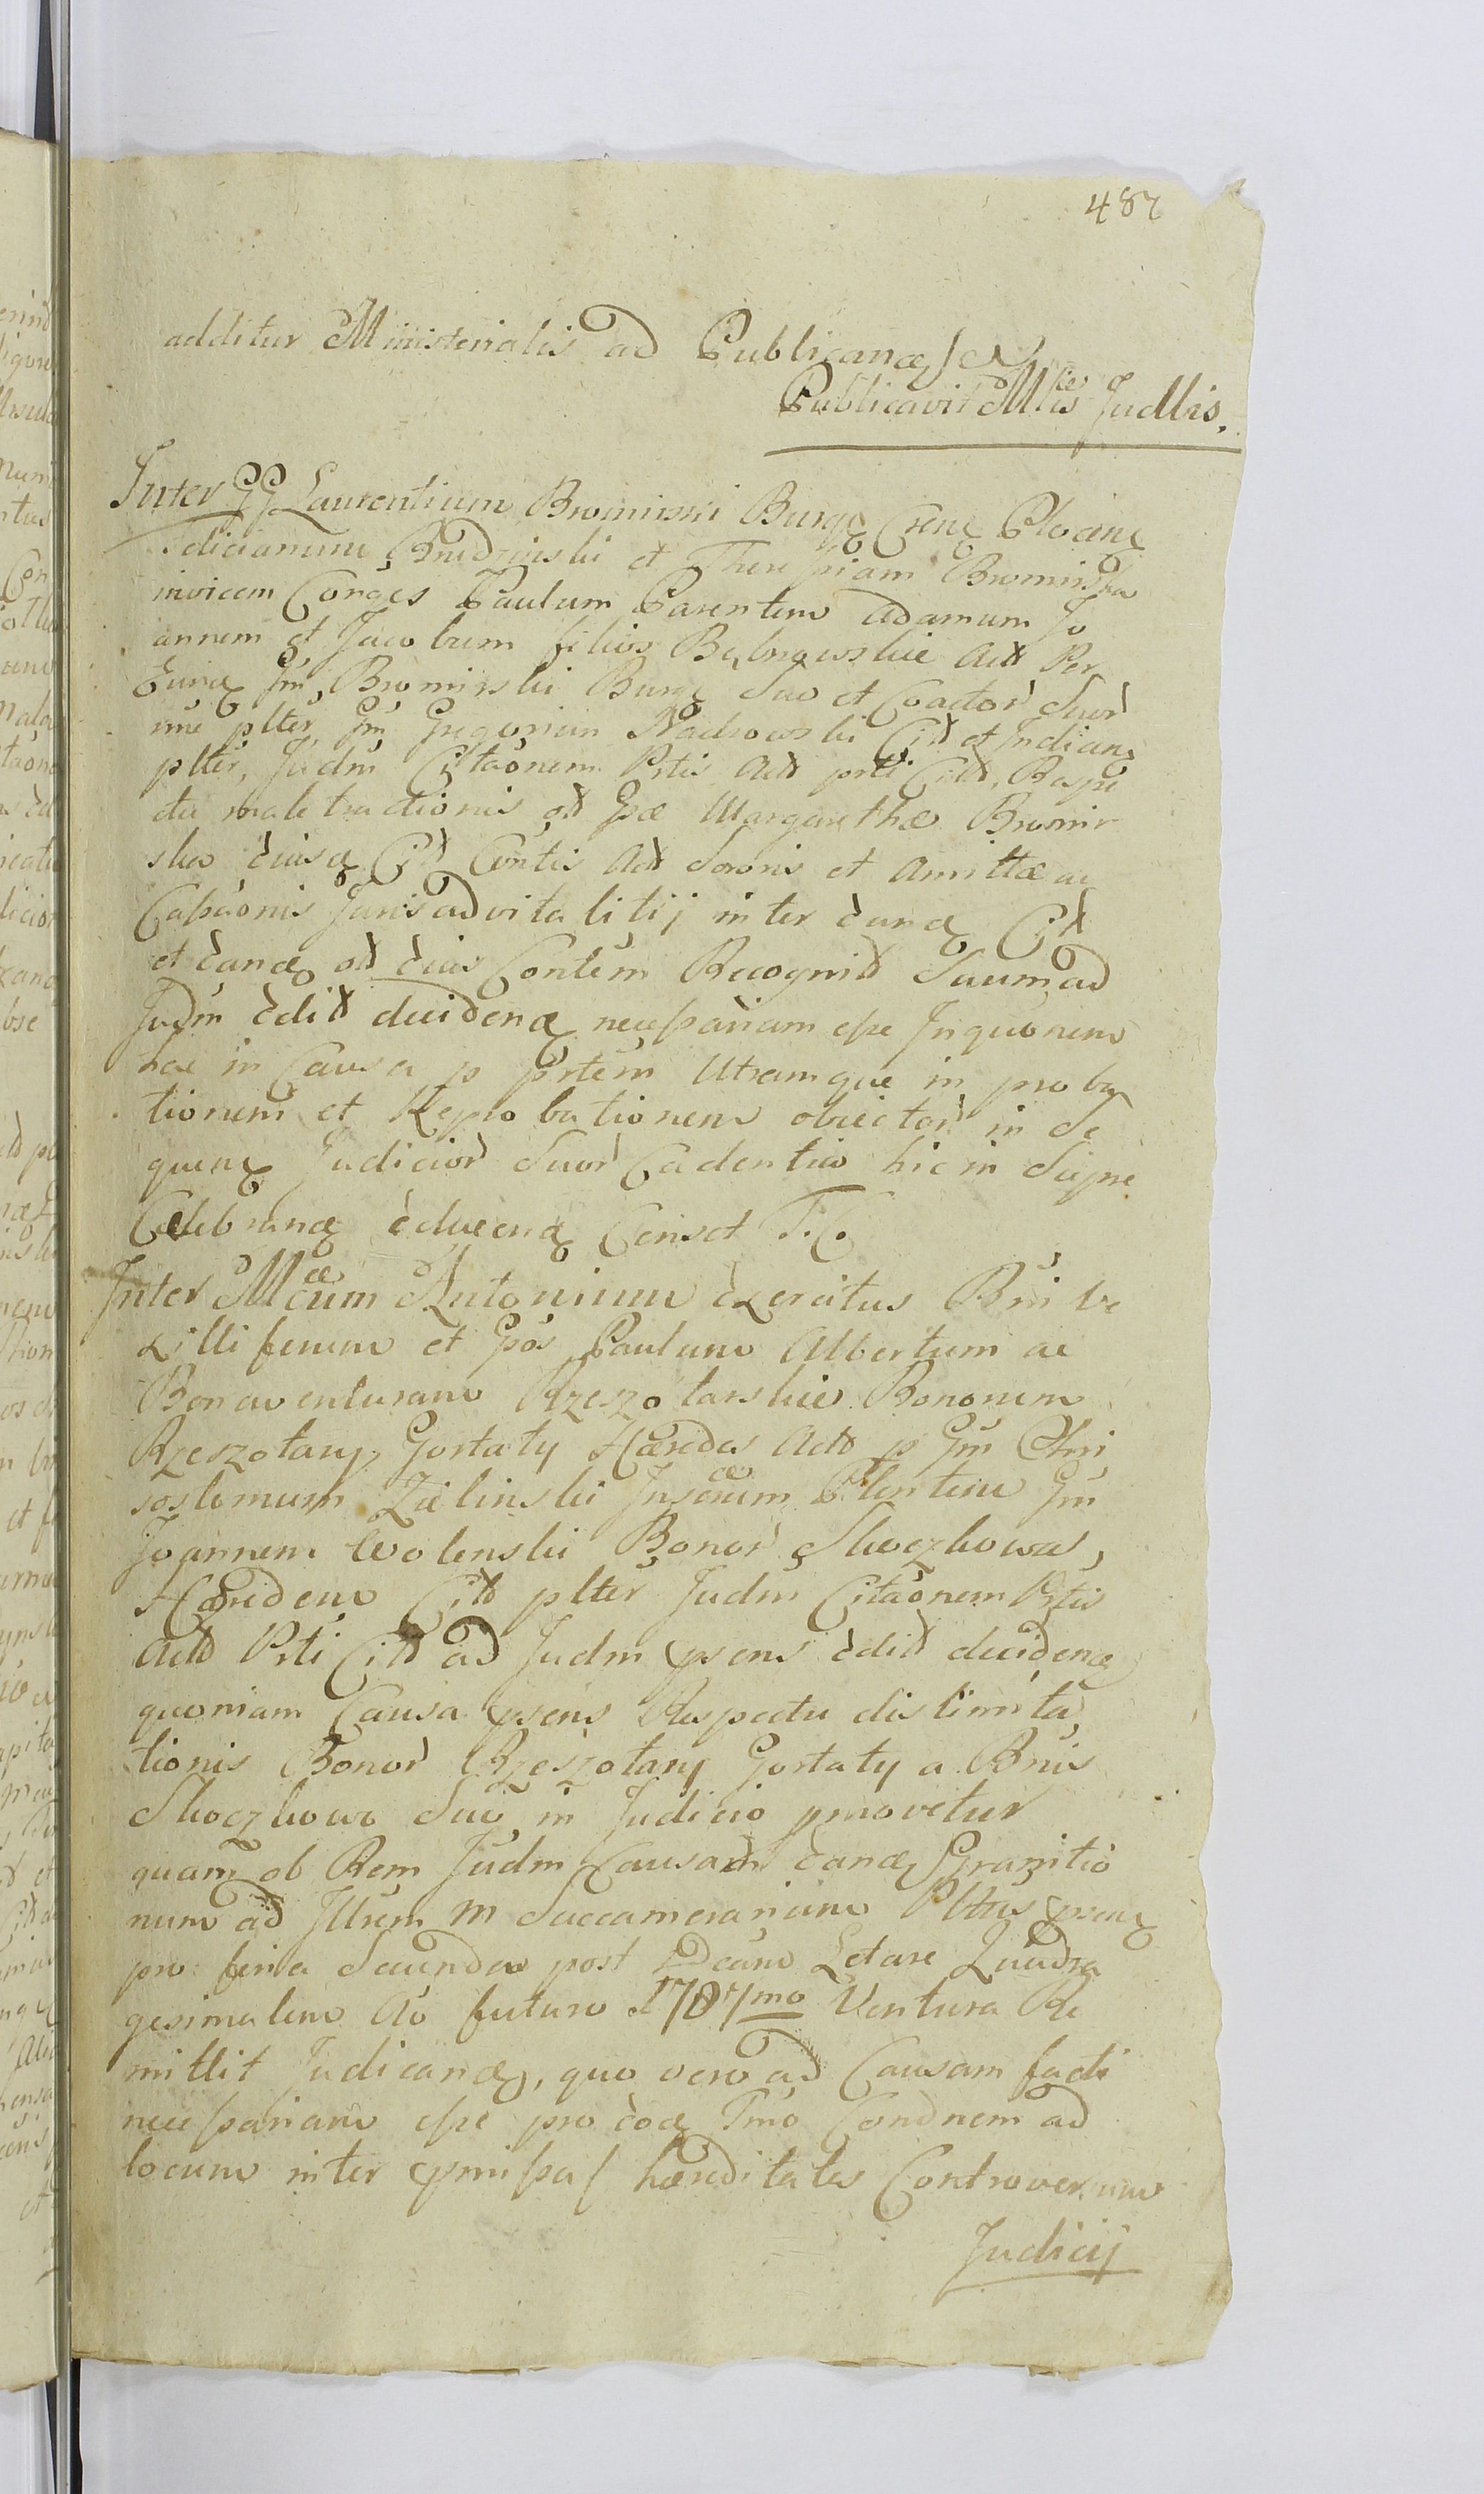 487
additur Ministerialis ad Publicanae
Publicavit Mlis Judlis.
Inter GG Laurentium Bromirski Burgę Crenę Plocinę
Felicianum Brudzinski et Theresiam Bromirska
invicem Conges Paulum Parentem Adamum Jo
annem et Jacobum filios Actt Per
Gm Bromirski Burgę Suo et Coactor Suor
nne plter Gm Gregorium Nadrowski Citt et Indianę
plter, Judm Citaonem Prtis Actt prti Citt, Respe
ctu male tractionis ott Gae Margarethae Bromir
ska Citt Contis Actt Sororis et Amittae ac
Juris advitalitij inter Citt
et ott eius Contem Recognitt Suum ad
Judm editt decidenae necessariam esse Inquonem
hac in Causa p prtem Utramque in proba
tionem et Reprobationem obiector in Se
quenę Judicior Suor Cadentia hic in Sierpc
Celebranae educenę Censet T. C.
Inter Mcum Antonium Exercitus Bni Ve
xilliferum et Gos Paulum Albertum ac
Bonaventuram Rzeszotarskie Bonorum
Rzeszotary Gortaty Haeredes Actt p Gm Chri
sostomum Zielinski Plentem Gm
Joannem Wolenski Bonor Skoczkowa,
Haeredem Citt plter Judm Citaonem Prtis
Actt Prti Citt ad Judm psens editt decidenae
quoniam Causa psens Respectu dislimita
tionis Bonor Rzeszotary Gortaty a Bnis
Skoczkowo Suo in Judicio pmovetur
quam ob Rem Judm Causam eanae Granitio
num ad Illrem M Succamerarium Pltus psenę
pro feria Secunda post Dcam Letare Quadra
gesimalem Ao futuro 1787mo Ventura Re
mittit Judicanae, quo vero ad Causam facti
necessariam esse pro Tmo Condnem ad
locum inter pmissas haereditates Controversum
Judicij